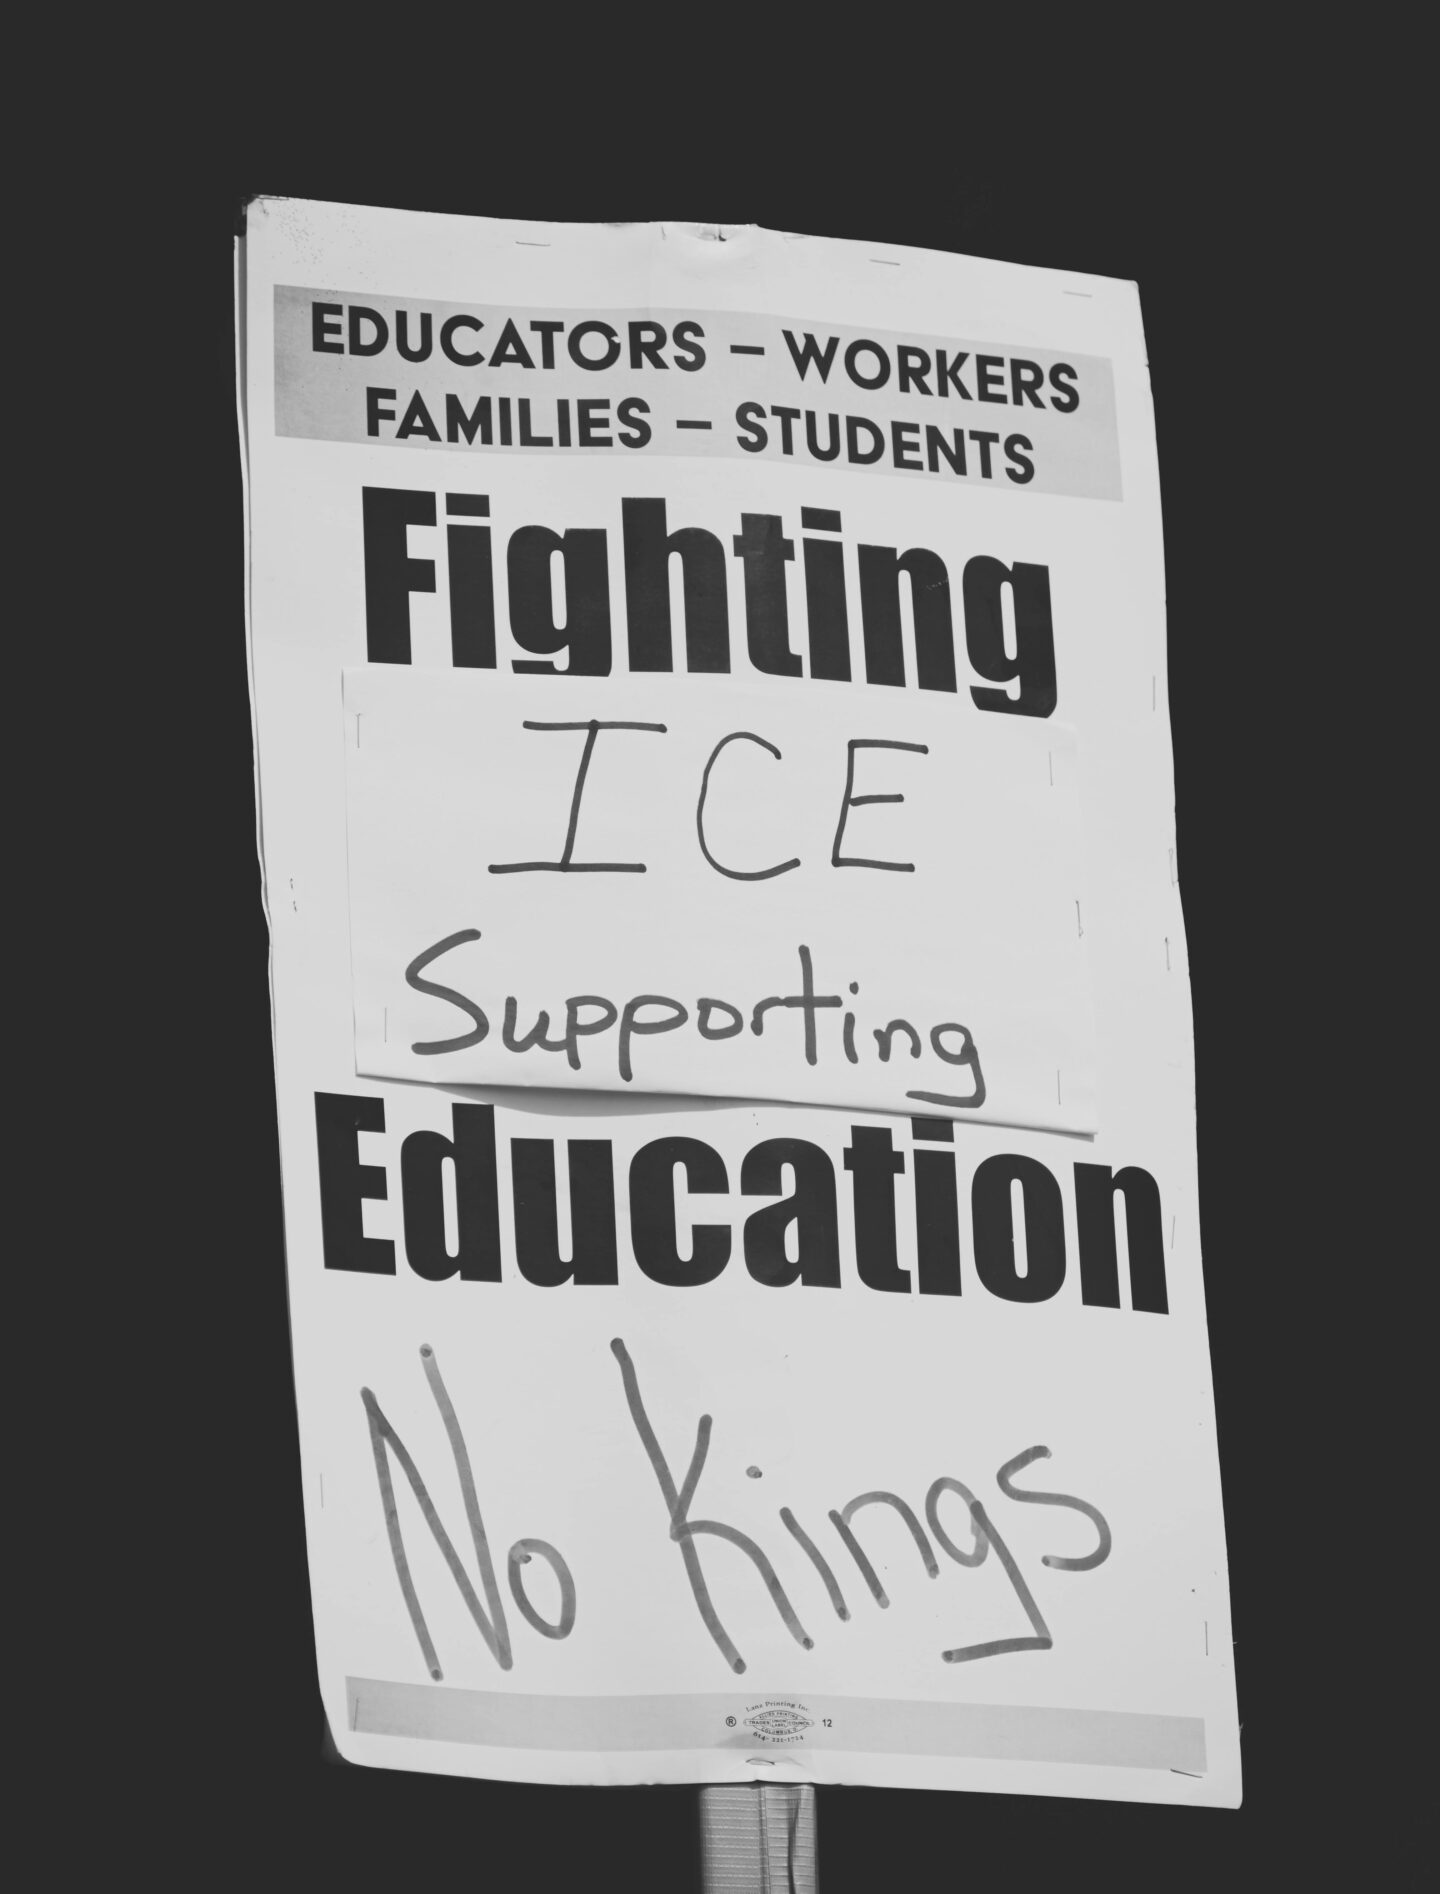 EDUCATORS – WORKERS
FAMILIES – STUDENTS
Fighting
ICE
Supporting
Education
No Kings
Lanz Printing Inc.
ALLIED PRINTING
® TRADES UNION LABEL COUNCIL 12
COLUMBUS, O.
614- 221-1724